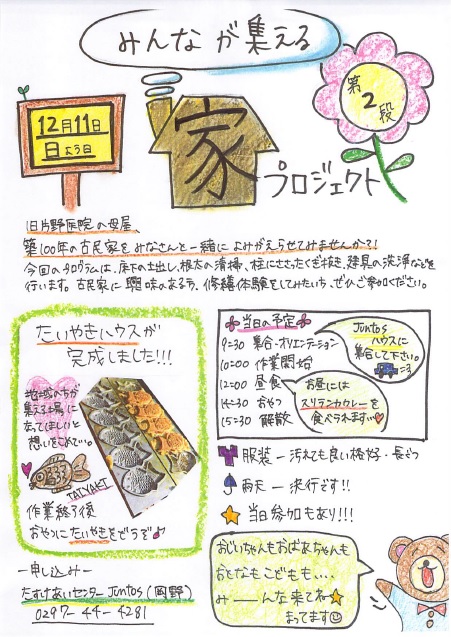 みんなが集える
12月11日
日よう日
家
プロジェクト
第
2
段
旧片野医院の母屋、
築100年の古民家をみなさんと一緒によみがえらせてみませんか?!
今回のプログラムは、床下の土出し、根太の清掃、柱にささったくぎ抜き、建具の洗浄などを
行います。古民家に興味のある方、修繕体験をしてみたい方、ぜひご参加ください。
たいやきハウスが
完成しました!!!
地域の方が
集える場に
なってほしいと
想いをこめて…。
TAIYAKI
作業終了後
おやつにたいやきをどうぞ♪
当日の予定
9:30 集合・オリエンテーション
10:00 作業開始
12:00 昼食
14:30 おやつ
15:30 解散
Juntos
ハウスに
集合して下さい。
お昼には
スリランカカレーを
食べられます…
服装ー汚れても良い格好・長ぐつ
雨天ー決行です!!
当日参加もあり!!!
ー申し込みー
たすけあいセンターJuntos(岡野)
0297-44-4281
おじいちゃんもおばあちゃんも
おとなもこどもも....
みーーんな来てね
まってます